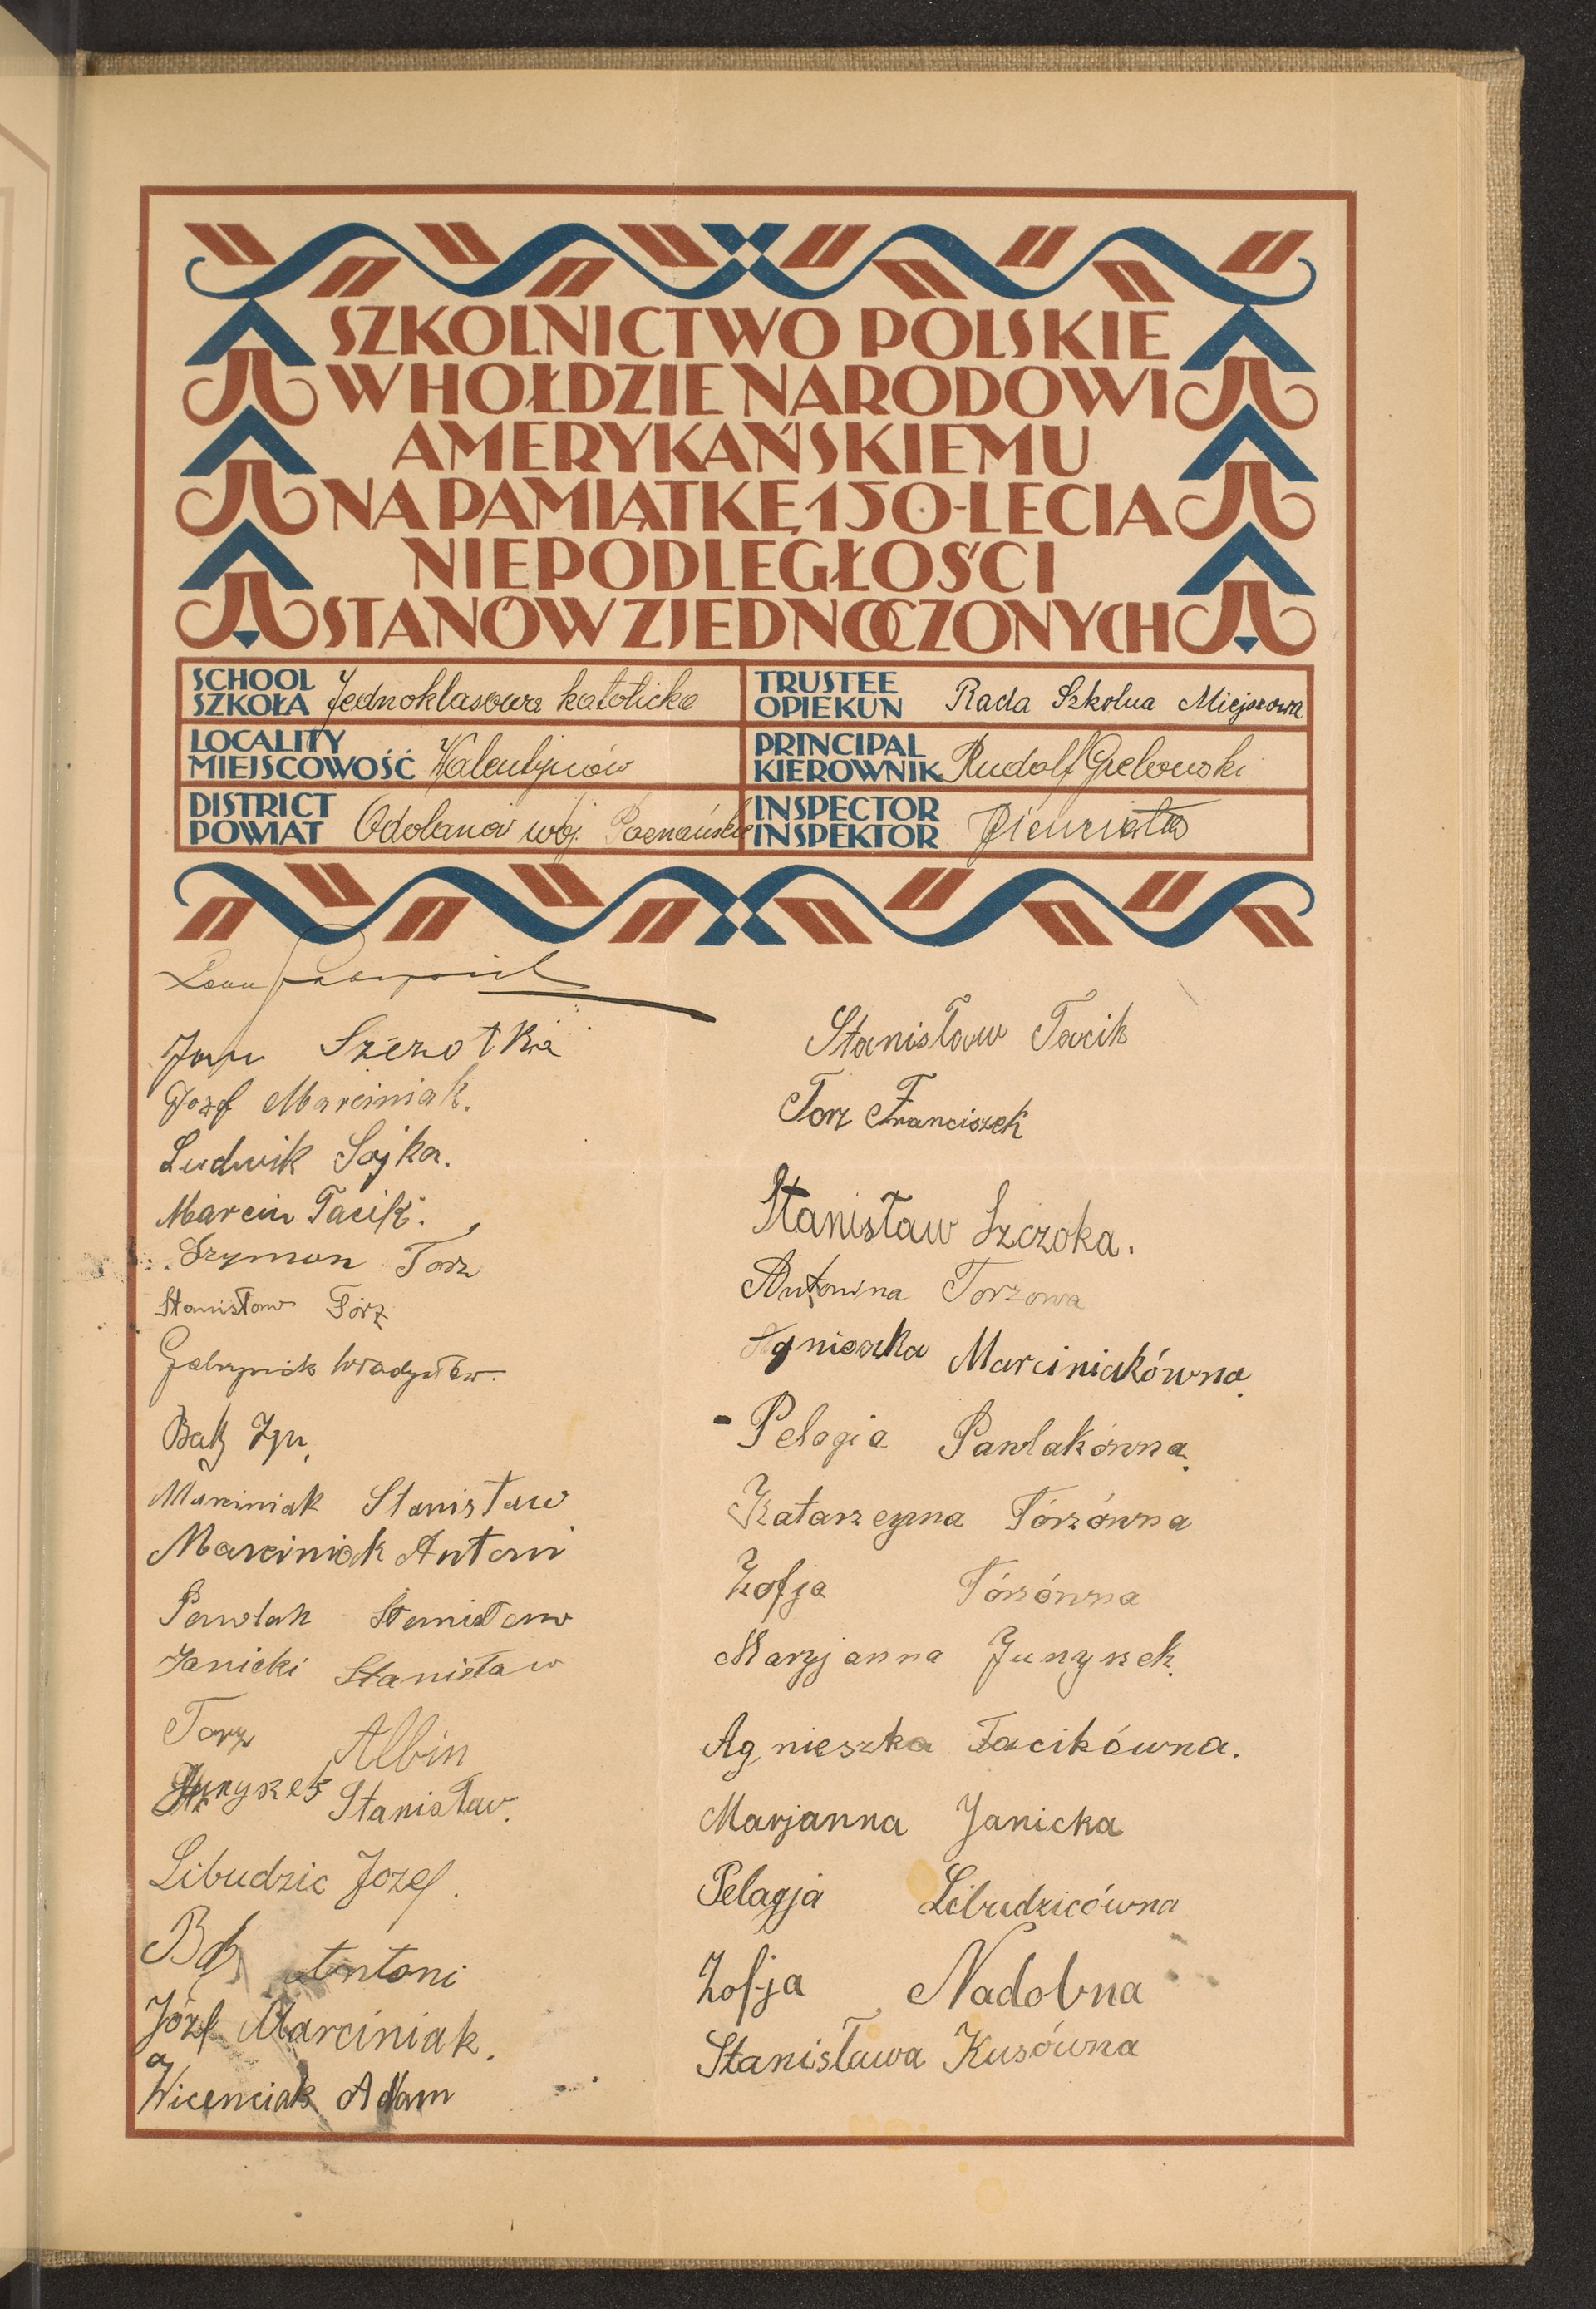 SZKOLNICTWO POLSKIE
W HOŁDZIE NARODOWI
AMERYKAŃSKIEMU
NA PAMIĄTKĘ 150-LECIA
NIEPODLEGŁOŚCI
STANÓW ZJEDNOCZONYCH
SCHOOL
SZKOŁA Jednoklasowa katolicka
TRUSTEE
OPIEKUN Rada Szkolna Miejscowa
LOCALITY
MIEJSCOWOŚĆ Walentynów
PRINCIPAL
KIEROWNIK Rudolf
DISTRICT
POWIAT Odolanów woj. Poznańskie
INSPECTOR
INSPEKTOR
Jan Szczotka
Józef Marciniak.
Ludwik Sojka.
Marcin Tacik.
Szymon Torz
Stanisław Torz
Władysław
Bąk
Marciniak Stanisław
Marciniak Antoni
Pawlak Stanisław
Janicki Stanisław
Torz Albin
Junyszek Stanisław.
Libudzic Jozef.
Antoni
Józef Marciniak.
Wicenciak Adam
Stanisław Tacik
Torz Franciszek
Stanisław Szczoka.
Antonina Torzowa
Agnieszka Marciniakówna.
Pelagia Pawlakówna.
Katarzyna Tórzówna
Zofja Tórzówna
Maryjanna Junyszek.
Agnieszka Tacikówna.
Marjanna Janicka
Pelagja Libudzicówna
Zofja Nadobna
Stanisława Kusówna